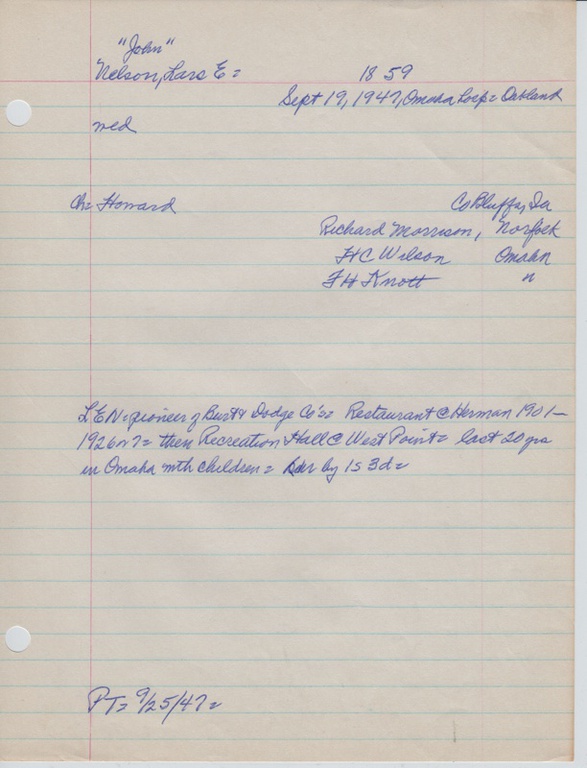 "John"
Nelson, Lars E = 1859
Sept 19, 1947, Omaha Hosp = Oakland
med
Ch = Howard Co Bluffs, Ia
Richard Morrison, Norfolk
H C Wilson Omaha
F H Knott "
L E N = pioneer of Burt & Dodge Co's = Restaurant @ Herman 1901-
1926 or 7 = then Recreation Hall @ West Point = last 20 yrs
in Omaha with children = Sur by 1s 3d =
PT = 9/25/47 =